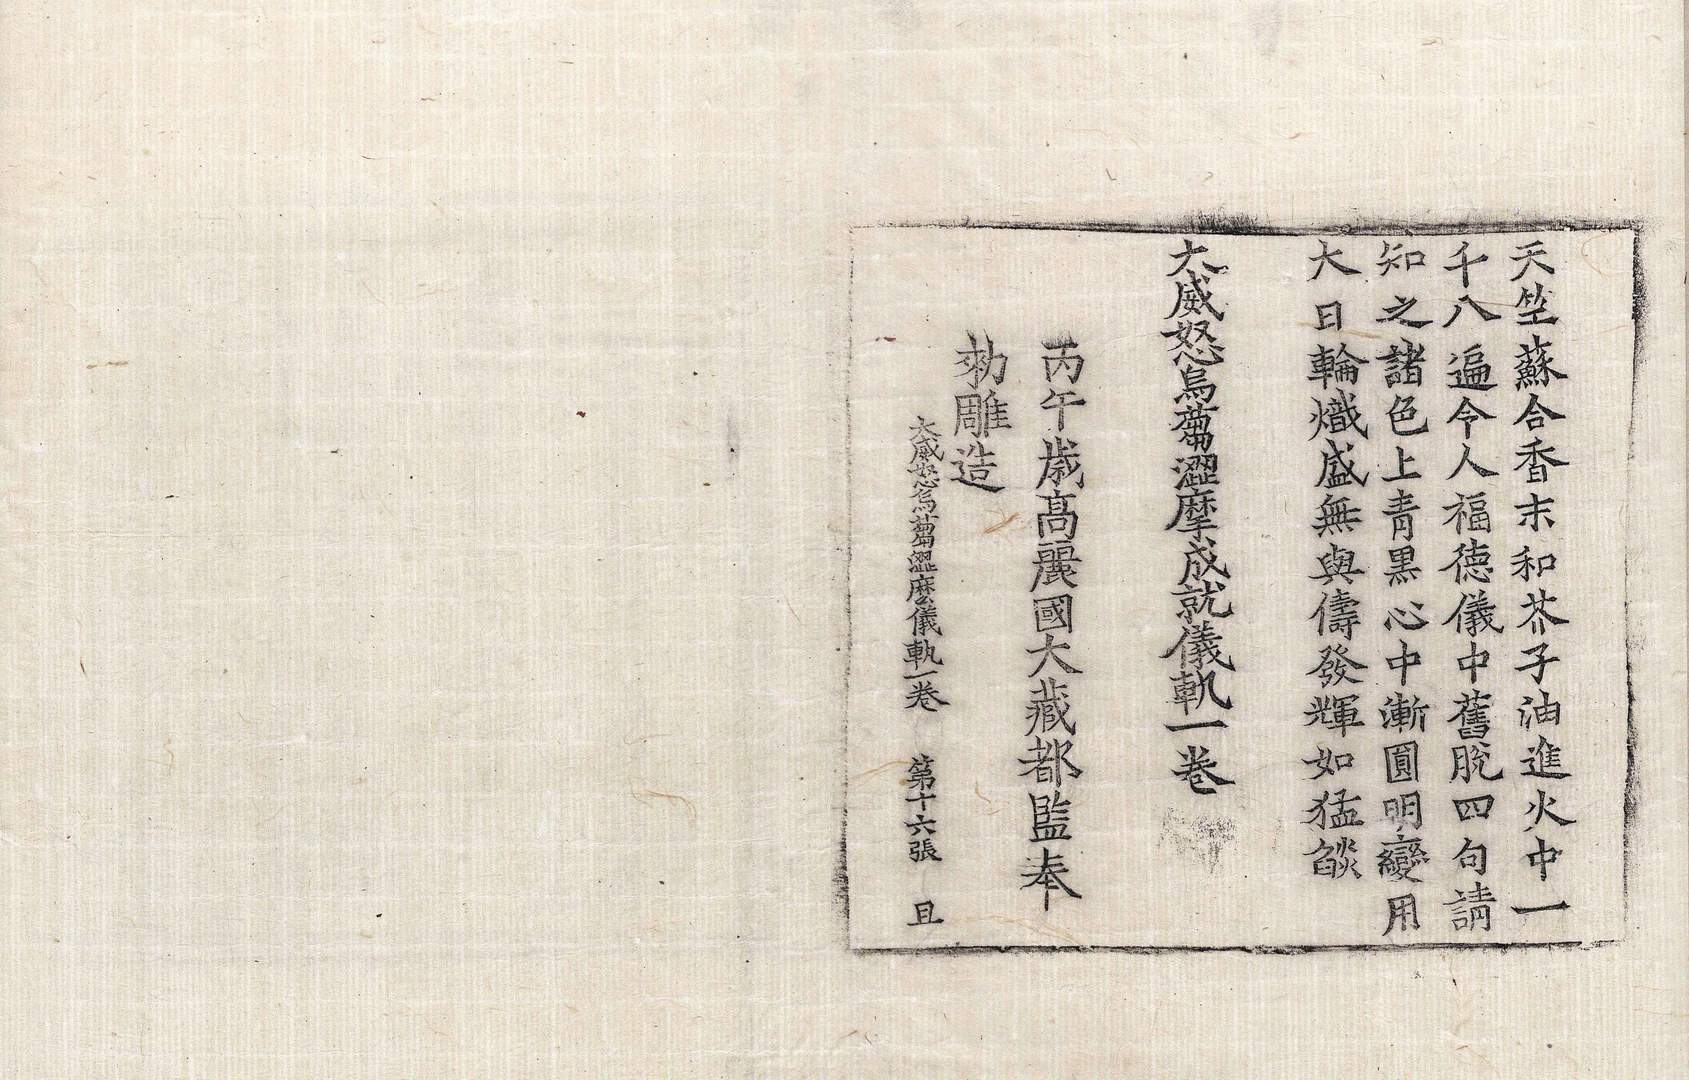 天竺蘇合香末和芥子油進火中一
千八遍令人福德儀中舊脫四句請
知之諸色上青黑心中漸圓明變用
大日輪熾盛無與儔發輝如猛燄
大威怒烏蒭澀摩成就儀軌一卷
丙午歲高麗國大藏都監奉
勑雕造
大威怒烏蒭澀麽儀軌一卷 第十六張 且